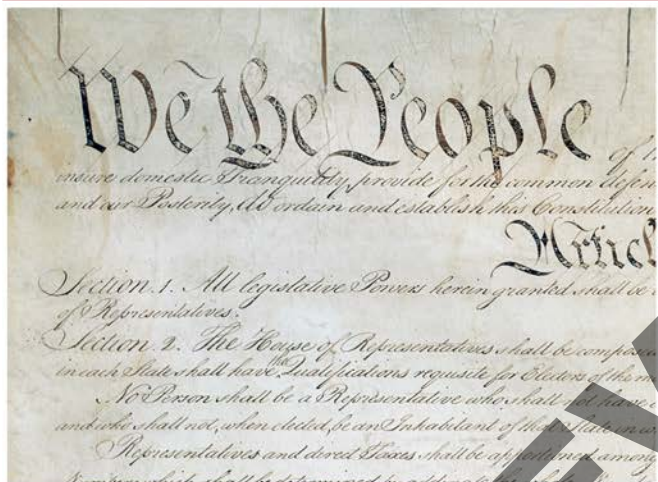 We the People of th
insure domestic Tranquility, provide for the common defen
and our Posterity, do ordain and establish this Constitution
Articl
Section. 1. All legislative Powers herein granted shall be
of Representatives.
Section. 2. The House of Representatives shall be composed
in each State shall have the Qualifications requisite for Electors of the m
No Person shall be a Representative who shall not have
and who shall not, when elected, be an Inhabitant of that State in w
Representatives and direct Taxes shall be apportioned among
Numbers, which shall be determined by adding to the whole Nu